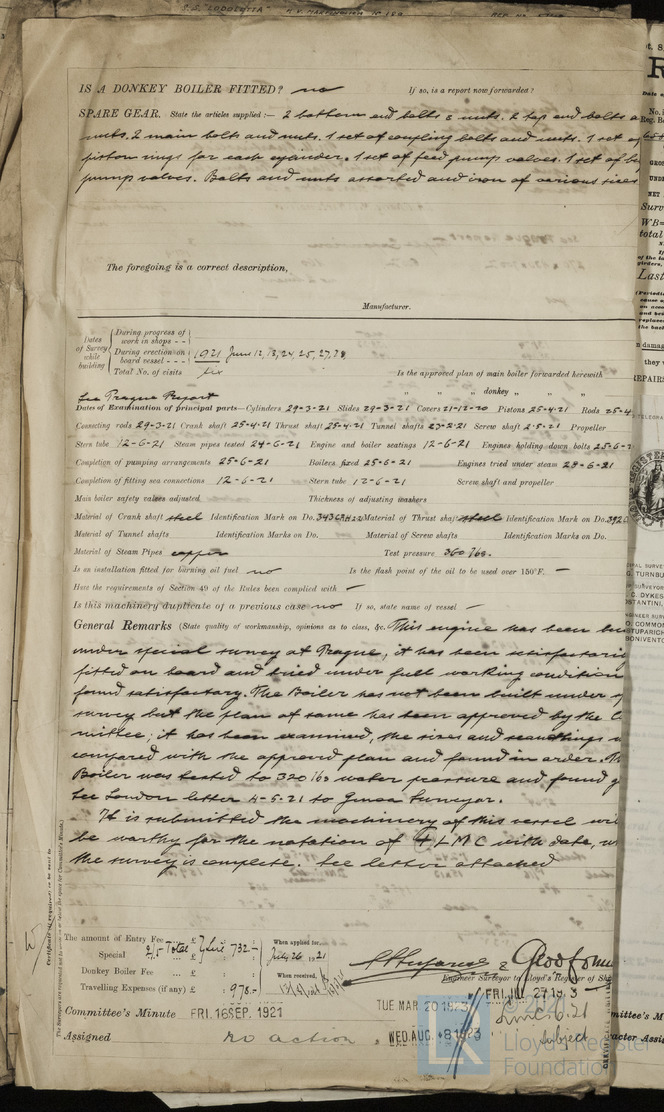 IS A DONKEY BOILER FITTED? no If so, is a report now forwarded?
SPARE GEAR. State the articles supplied:— 2 bottom end bolts & nuts. 2 top end bolts a
nuts. 2 main bolts and nuts. 1 set of coupling bolts and nuts. 1 set of
piston rings for each cylinder. 1 set of feed pump valves. 1 set of
pump valves. Bolts and nuts assorted and iron of various sizes
The foregoing is a correct description,
Manufacturer.
Dates of Survey while building
During progress of work in shops - -
During erection on board vessel - - - 1921 June 12, 13, 24, 25, 27, 28
Total No. of visits six
Is the approved plan of main boiler forwarded herewith
" " " donkey " " "
See Prague Report
Dates of Examination of principal parts—Cylinders 29-3-21 Slides 29-3-21 Covers 21-12-20 Pistons 25-4-21 Rods 25-4
Connecting rods 29-3-21 Crank shaft 25-4-21 Thrust shaft 25-4-21 Tunnel shafts 23-2-21 Screw shaft 2-5-21 Propeller
Stern tube 12-6-21 Steam pipes tested 24-6-21 Engine and boiler seatings 12-6-21 Engines holding down bolts 25-6-2
Completion of pumping arrangements 25-6-21 Boilers fixed 25-6-21 Engines tried under steam 28-6-21
Completion of fitting sea connections 12-6-21 Stern tube 12-6-21 Screw shaft and propeller
Main boiler safety valves adjusted Thickness of adjusting washers
Material of Crank shaft steel Identification Mark on Do. Material of Thrust shaft steel Identification Mark on Do.
Material of Tunnel shafts Identification Marks on Do. Material of Screw shafts Identification Marks on Do.
Material of Steam Pipes copper Test pressure 360 lbs.
Is an installation fitted for burning oil fuel no Is the flash point of the oil to be used over 150°F. —
Have the requirements of Section 49 of the Rules been complied with —
Is this machinery duplicate of a previous case no If so, state name of vessel —
General Remarks (State quality of workmanship, opinions as to class, &c. This engine has been
under special survey at Prague, it has been satisfactorily
fitted on board and tried under full working condition
found satisfactory. The Boiler has not been built under
survey but the plan of same has been approved by the C
mittee; it has been examined, the sizes and scantlings
compared with the approved plan and found in order. Th
Boiler was tested to 320 lbs water pressure and found g
See London letter 4-5-21 to Genoa Surveyor.
It is submitted the machinery of this vessel
be worthy for the notation of + LMC with date,
the survey is complete. See letter attached
The amount of Entry Fee £ When applied for,
Special £ Lire 732.- July 26 1921
Donkey Boiler Fee £ When received,
Travelling Expenses (if any) £ 978.-
Engineer Surveyor to Lloyd's Register of Sh
Committee's Minute FRI. 16 SEP. 1921 TUE MAR 20 1923 FRI. JUL 27 1923
Assigned no action WED. AUG. 8 1923 Subject
Certificate (if required) to be sent to
© 2021
LR
Lloyd's Register
Foundation